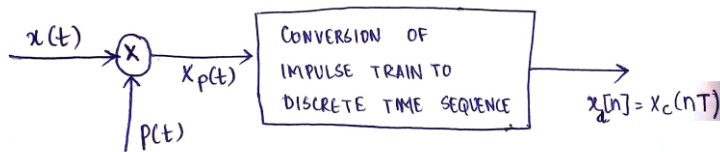 x(t)
X
Xp(t)
p(t)
CONVERSION OF
IMPULSE TRAIN TO
DISCRETE TIME SEQUENCE
xd[n] = Xc(nT)